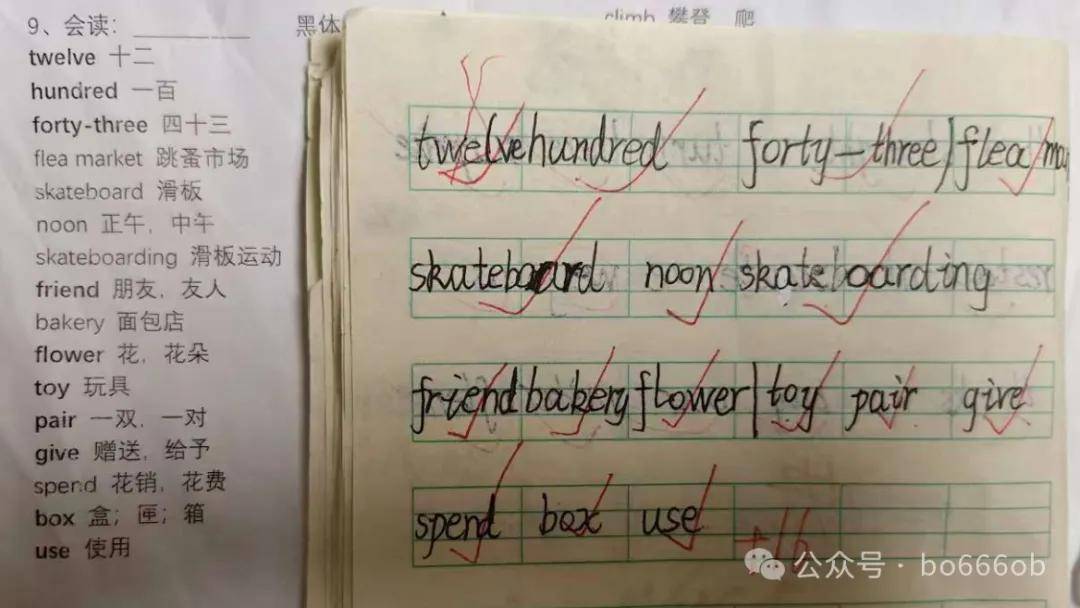 9、会读：
黑体
climb 攀登 爬
twelve 十二
hundred 一百
forty-three 四十三
flea market 跳蚤市场
skateboard 滑板
noon 正午，中午
skateboarding 滑板运动
friend 朋友，友人
bakery 面包店
flower 花，花朵
toy 玩具
pair 一双，一对
give 赠送，给予
spend 花销，花费
box 盒；匣；箱
use 使用
twelve hundred forty-three flea
skateboard noon skateboarding
friend bakery flower toy pair give
spend box use
+16
公众号 · bo666ob